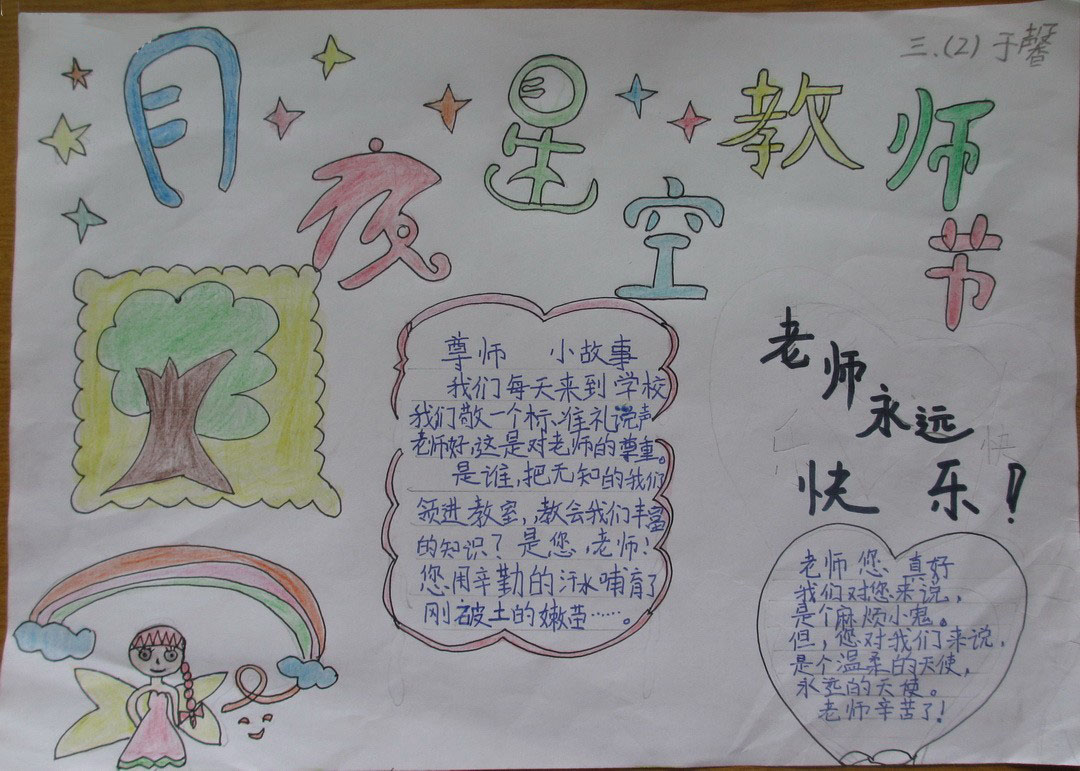 三.(2) 于馨
月夜星空教师节
尊师 小故事
我们每天来到学校
我们敬一个标准礼说声
老师好,这是对老师的尊重。
是谁,把无知的我们
领进教室,教会我们丰富
的知识?是您,老师!
您用辛勤的汗水哺育了
刚破土的嫩苗……。
老师永远
快乐!
老师 您 真好
我们对您来说,
是个麻烦小鬼。
但,您对我们来说,
是个温柔的天使,
永远的天使。
老师辛苦了!